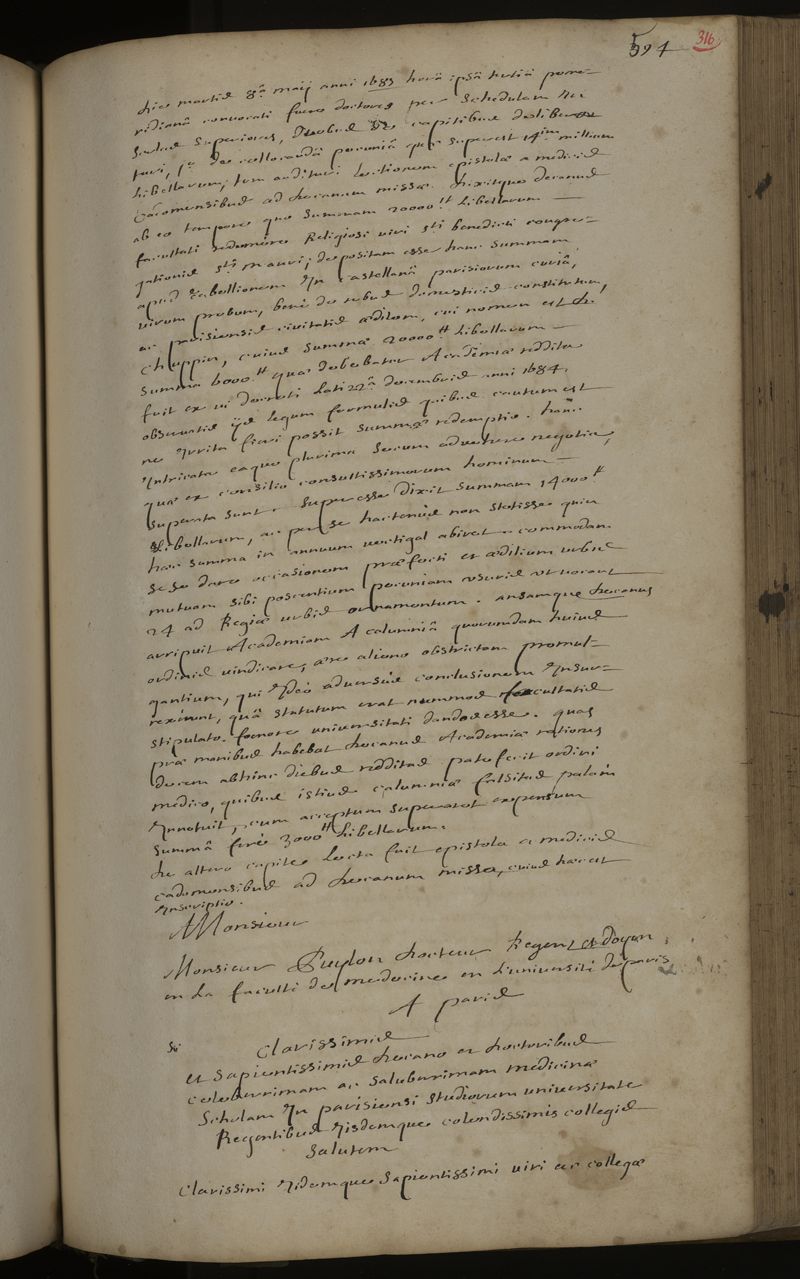 594 316
die martis 8ª maij anni 1685 horâ ipsâ tertiâ pome-
ridianâ convocati fuere doctores per schedulam in
scholas superiores, duobus de capitibus delibera-
turi, 1° de collocandâ pecuniâ quæ superest 14im millium
libellarum, tum audituri lectionem epistolæ a medicis
Cadomensibus ad decanum missæ. dixitque decanus
ab eo tempore quo summam 20000tt libellarum
facultati redemêre Religiosi viri sti benedicti congre-
gationis sti mauri; depositam esse hanc summam
apud tabellionem in Castellanâ parisiorum curiâ,
virum probum, bene de rebus domesticis constitutum,
ac parisiensis civitatis ædilem, cui nomen est de
Chuppin, cuius summæ 20000tt libellarum
summa 6000tt quæ debebatur Academiæ reddita
fuit ex vi decreti lati 22ª decembris anni 1684.
observatis ijs legum formulis quibus cautum est
ne irrita fieri possit summæ redemptio. hæc
intricata eaque plurima secum advexere negotia,
quæ ex consilio consultissimorum hominum
superata sunt. superesse dixit summam 14000tt
libellarum, ac per se hactenus non stetisse quin
hæc summa in annuum vectigal abiret. commodam
sese dare occasionem præfecti et ædilium urbis
mutuam sibi poscentium pecuniam usuris ut vocant
24 ad Regiæ urbis ornamentum. ansamque decanus
arripuit Academiam A calumniâ quorumdam huius
ordinis vindicare, ære alieno obstrictam promul-
gantium, qui ideò adversus conclusionem insur-
rexerunt, quâ statutum erat nummos facultatis
stipulato fœnore universitati dandos esse. quas
præ manibus habebat decanus Academiæ rationes
decem abhinc diebus redditas patefecit ordini
medico, quibus istius calumniæ falsitas palàm
innotuit, cum acceptum superaret expensum
summâ ferè 3000tt libellarum.
de altero capite lecta fuit epistola a medicis
cadomensibus ad decanum missa, cuius hæc est
inscriptio.
Monsieur
Monsieur Puylon docteur Regent et doyen
en La faculté de medecine en L'université de paris
A paris
Clarissimis
et sapientissimis decano et doctoribus
celeberrimam ac saluberrimam medicinæ
scholam in parisiensi studiorum universitate
Regentibus iisdemque colendissimis collegis
salutem
Clarissimi iidemque sapientissimi viri ac collegæ